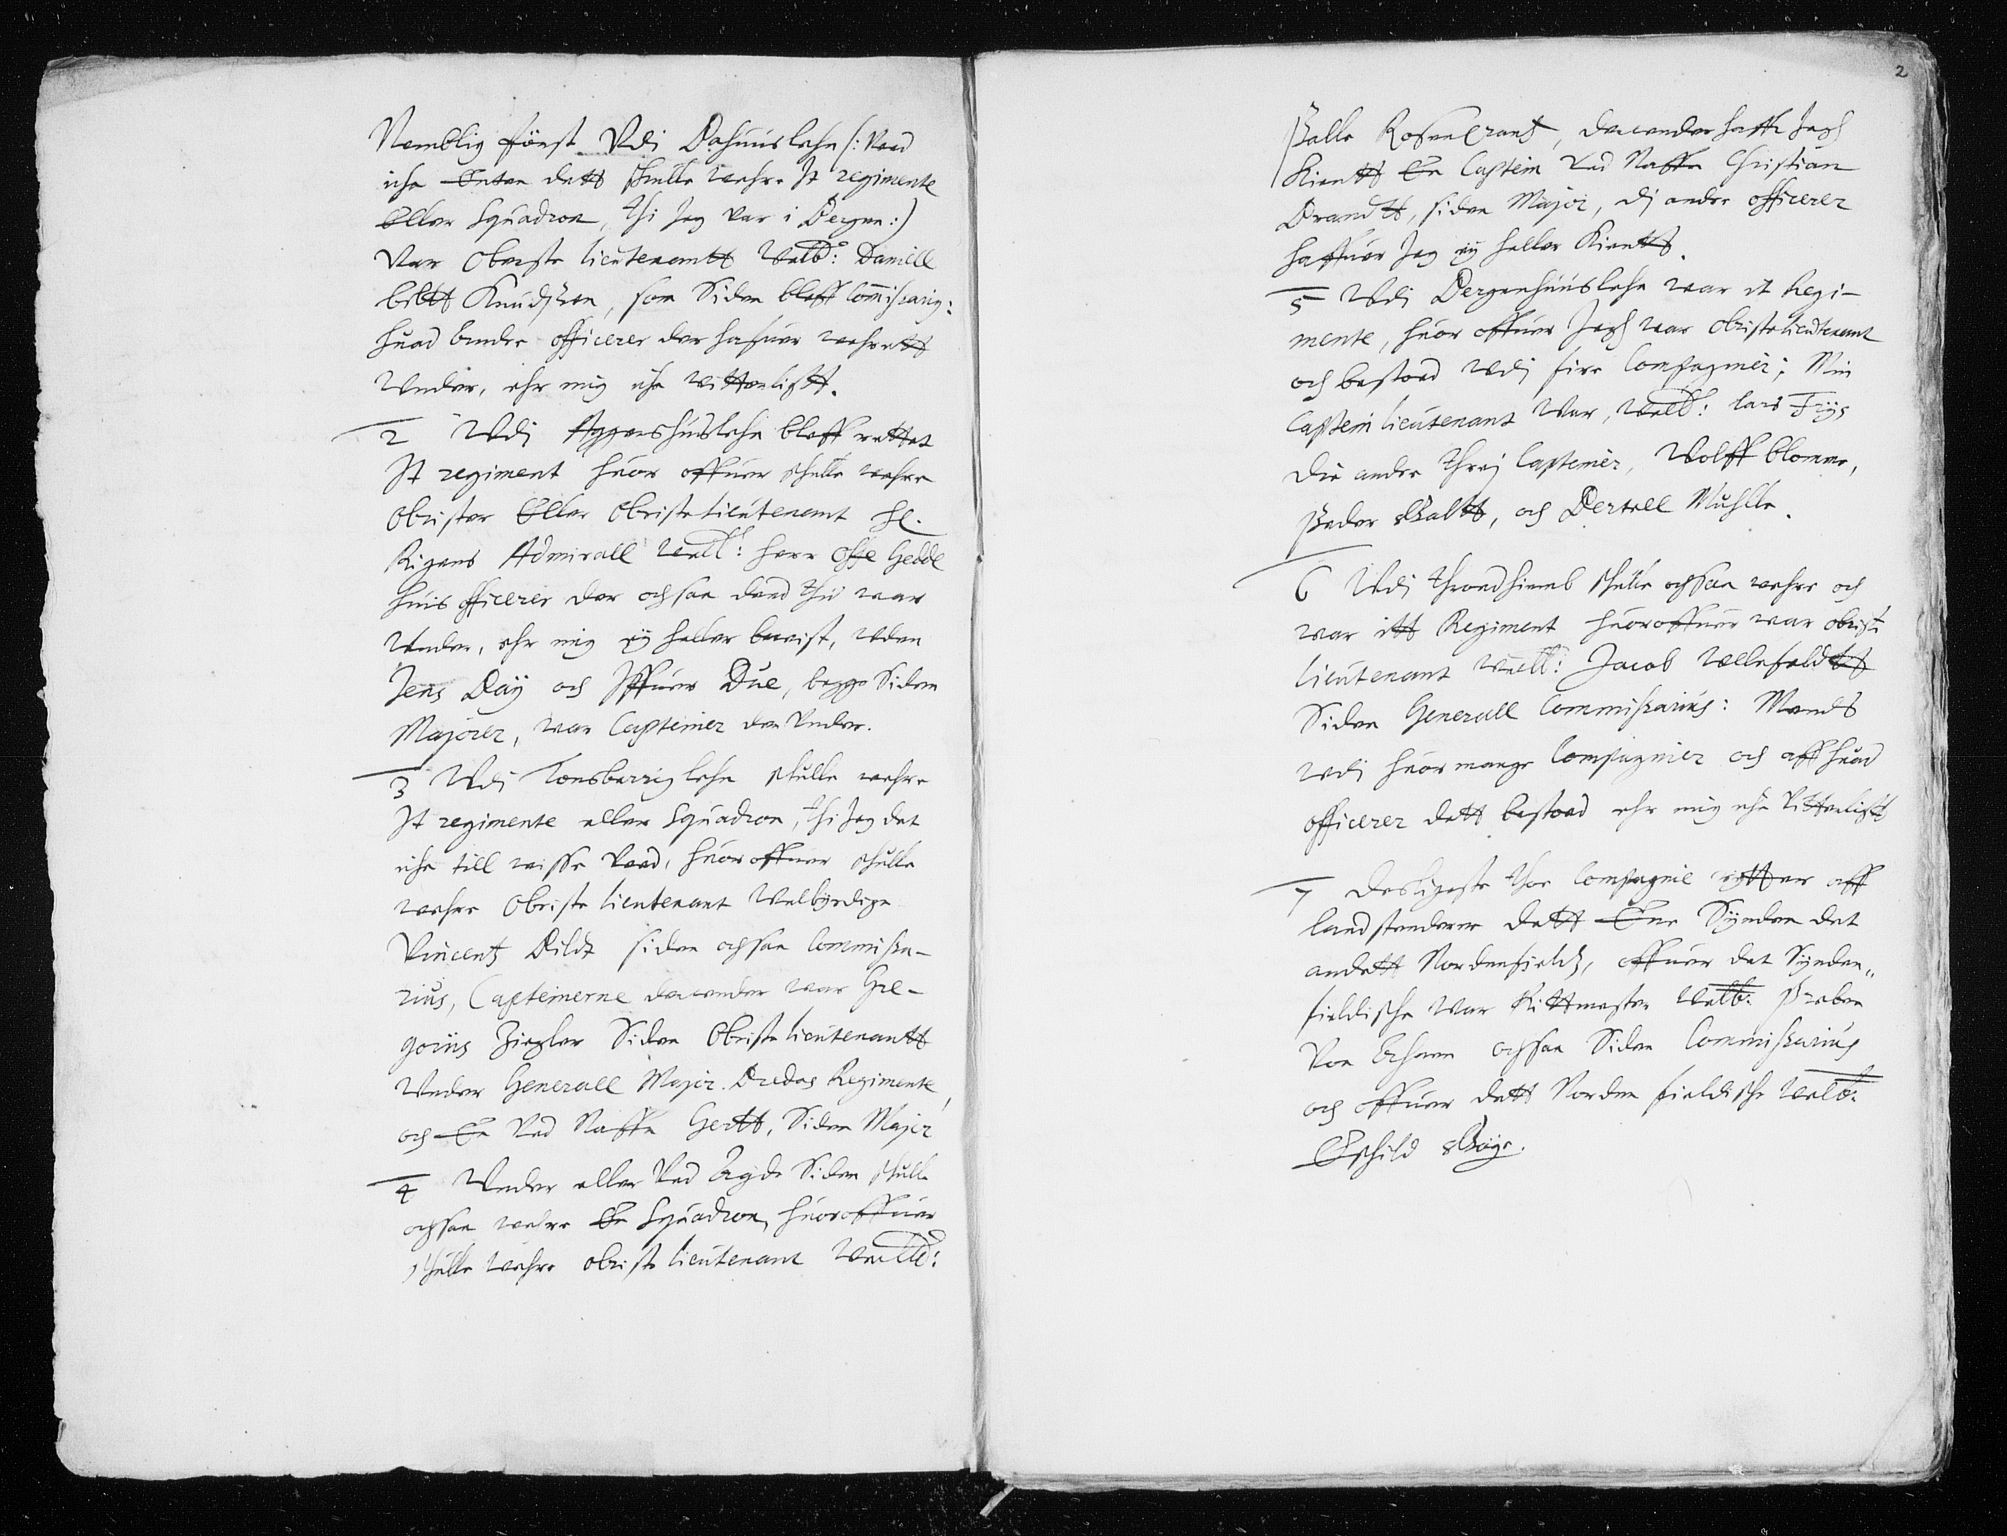 Nemblig först Udj Bahuuslehn /: Veed
iche Enten dett skulle wehre It regimente
Eller Squadron, thi Jeg var i Bergen :/
Var Oberste lieutenantt Velb: Daniell
bildtt Knudszen, som Siden bleff Commiszarig:
huad bendre officerer der hafuer wehrett
Under, ehr mig iche vitterligtt.
2 Udj Aggershuslehn bleff rettet
It regiment huor offuer skulle wehre
Obrister Eller Obriste lieutenant Hl.
Rigens Admirall Velb: herr Offe Gedde
huis officerer der ochsaa dend thid war
Under, ehr mig ey heller bewist, uden
Jens Bäy och Iffuer Due, begge Siden
Majorer, war Capteiner der Under.
3 Udj Tonsberrig lehn skulle wehre
It regimente eller Squadron, thi Jeg det
iche till wisse Veed, huor offuer skulle
wehre Obriste lieutenant Welbyrdige
Vincentz Bildt siden ochsaa Commisza-
rius, Capteinerne derunder war Gre-
gorius Ziegler Siden Obriste lieutenantt
Under Generall Major Bredas Regimente,
och En Ved Naffn Gertt, Siden Major
4 Under eller Ved Agde Siden skulle
ochsaa wehre En Squadron, huoroffuer
skulle wehre obriste lieutenant Welb:
2
Palle Rosencrantz, derunder haffr Jegh
Kientt En Captein Ved Naffn Christian
Brandtt, siden Major, dj andre officerer
haffuer Jeg ey heller Kientt.
5 Udj Bergenhuuslehn war it Regi-
mente, huor offuer Jegh war obriste lieutenant
och bestoed Udj fire Compagnier; Min
Captein lieutenant War, Welb: Lars Friis
Die andre threj Capteiner, Wolff blomme,
Peder Baltt, och Bertell Muhlle.
6 Udj throndhiemb skulle ochsaa wehre och
war itt Regiment huoroffuer war obriste
lieutenant Welb: Jacob Ullefeldtt
Siden Generall Commiszarius: Mends
udj huor mange Compagnier och aff huad
officerer dett bestoed ehr mig iche vitterligtt
7 Desligeste thoe Compagnie rytter aff
landstenderne dett Ene Synden det
andett Nordenfieldtz, offuer det Synden„
fieldische war Rittmester Welb: Preben
Von Ahnen ochsaa Siden Commiszarius
och offuer dett Norden fieldische Welb:
Eschild Böye.